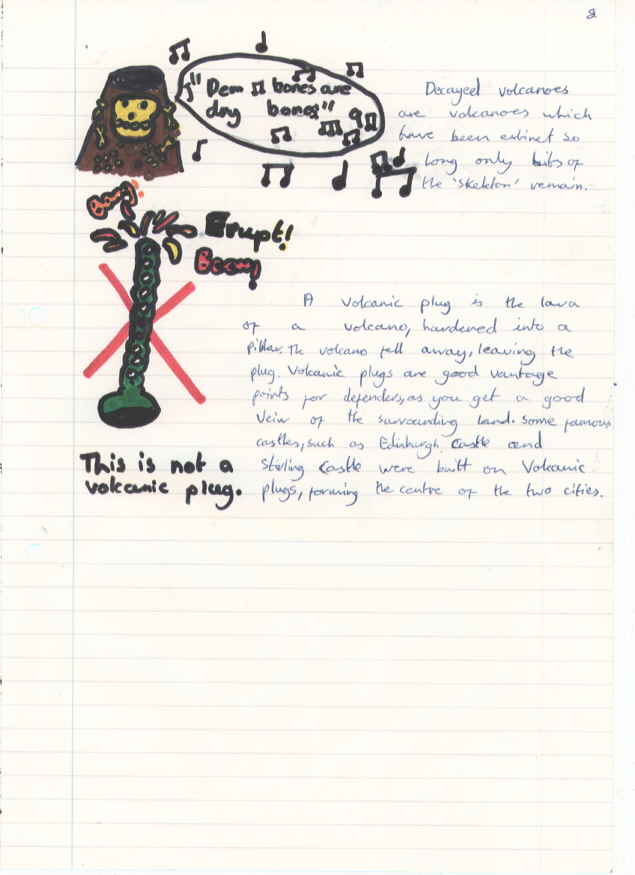 8
"Dem bones are
dry bones"
Decayed volcanoes
are volcanoes which
have been extinct so
long only bits of
the 'skeleton' remain.
Bang!
Erupt!
Boom!
A volcanic plug is the lava
of a volcano, hardened into a
pillar. The volcano fell away, leaving the
plug. Volcanic plugs are good vantage
points for defenders, as you get a good
veiw of the surrounding land. Some famous
castles, such as Edinburgh Castle and
Stirling Castle were built on Volcanic
plugs, forming the centre of the two cities.
This is not a
volcanic plug.